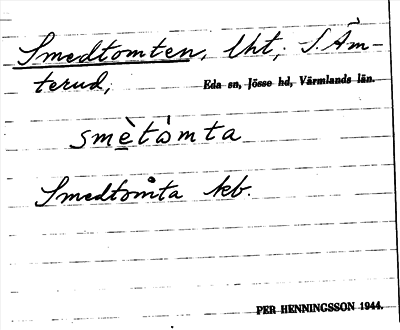 Smedtomten, lht; S. Äm-
terud; Eda sn, Jösse hd, Värmlands län.
smètòmta
Smedtomta kb.
PER HENNINGSSON 1944.